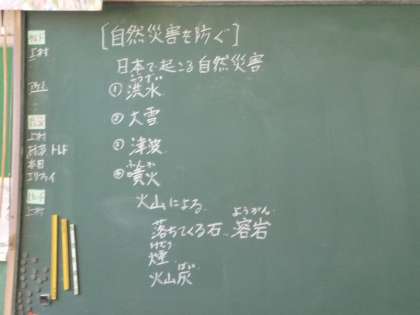 [自然災害を防ぐ]
日本で起こる自然災害
こうずい
①洪水
②大雪
③津波
ふんか
④噴火
火山による
ようがん
落ちてくる石、溶岩
けむり
煙
ばい
火山灰